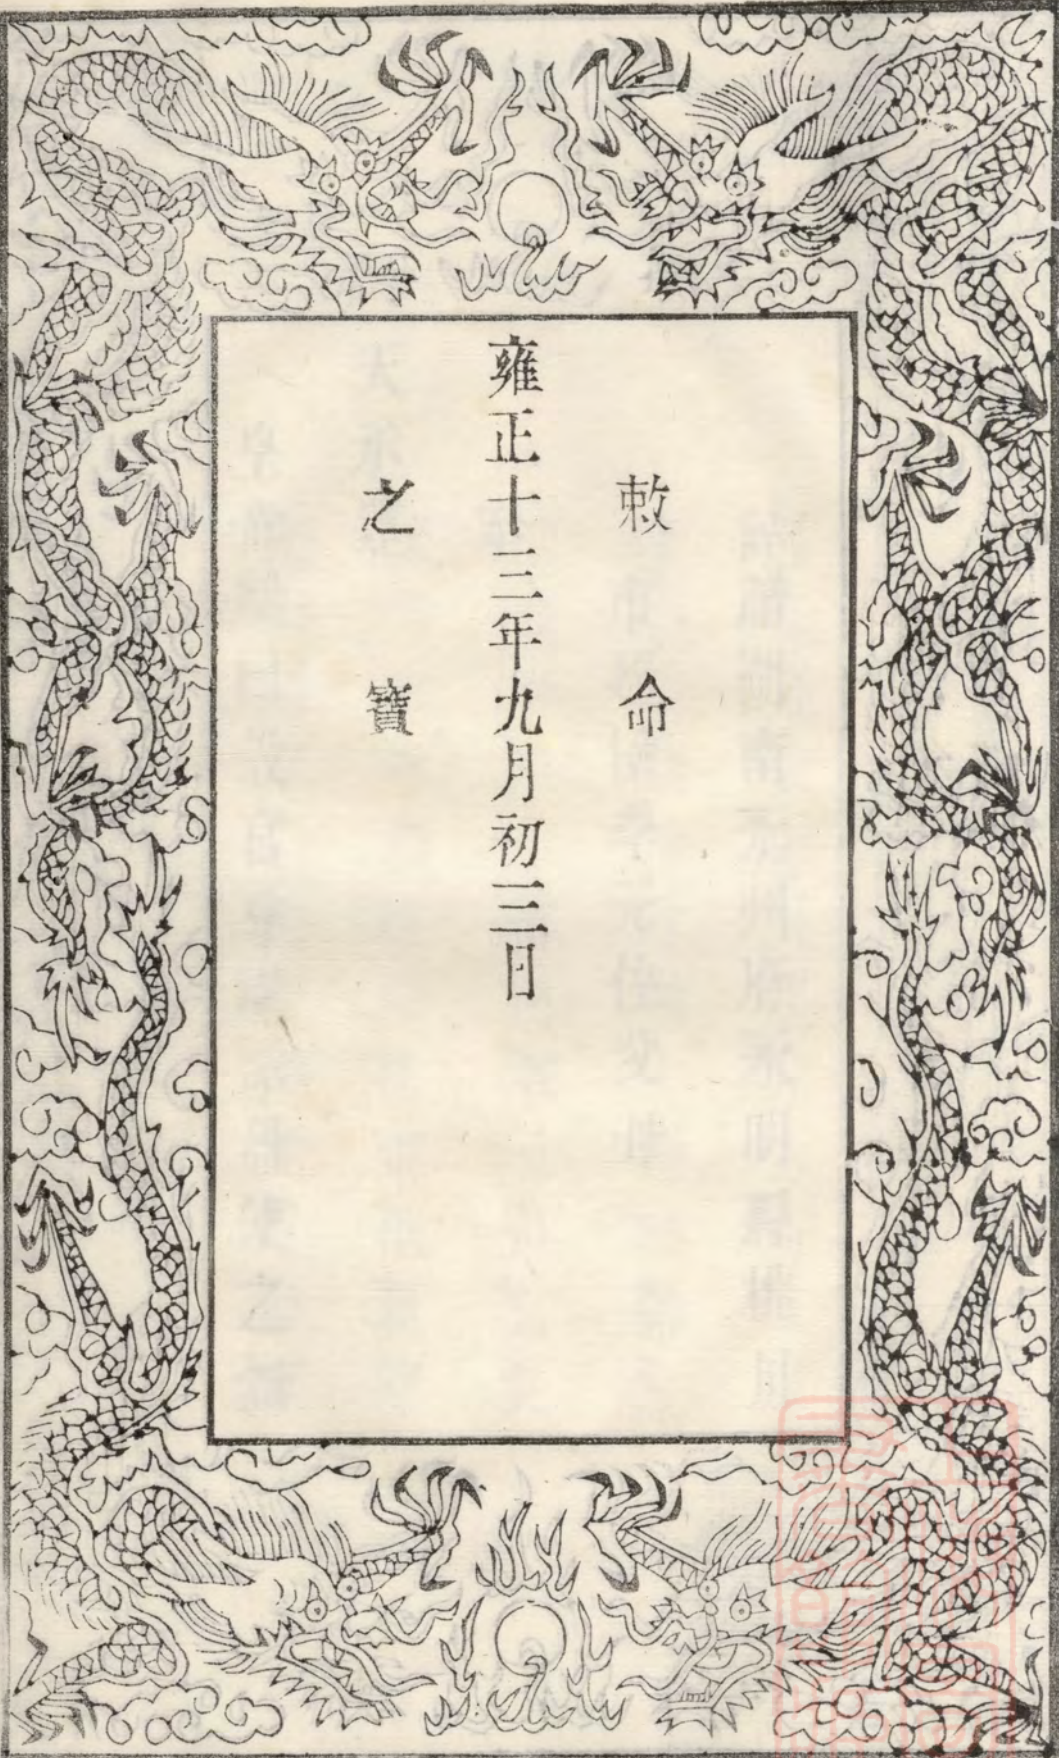 敕命
雍正十三年九月初三日
之寶